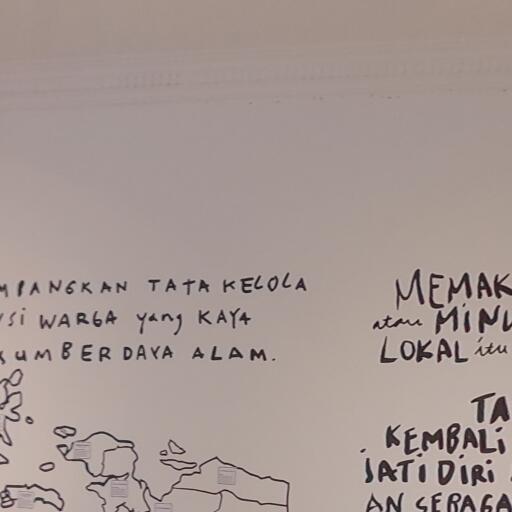 MPANGKAN TATA KELOLA
USI WARGA yang KAYA
SUMBER DAYA ALAM.
MEMAK
atau MINU
LOKAL itu
TA
KEMBALi
JATi DiRi
AN SEBAGA